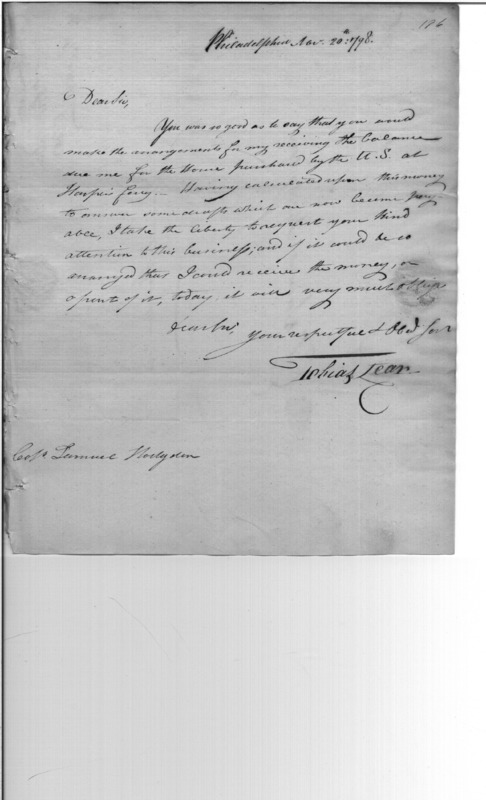 186
Philadelphia Nov. 20th 1798.
Dear Sir,
You was so good as to say that you would
make the arrangements for my receiving the balance
due me for the House purchased by the U.S. at
Harpers ferry. — Having calculated upon this money
to answer some drafts which are now become pay-
able, I take the liberty to request your kind
attention to this business; and if it could be so
arranged that I could receive the money, or
a part of it, today, it will very much oblige
Dear Sir,
Your respectful & Obd. Servt
Tobias Lear
Colo. Samuel Hodgdon